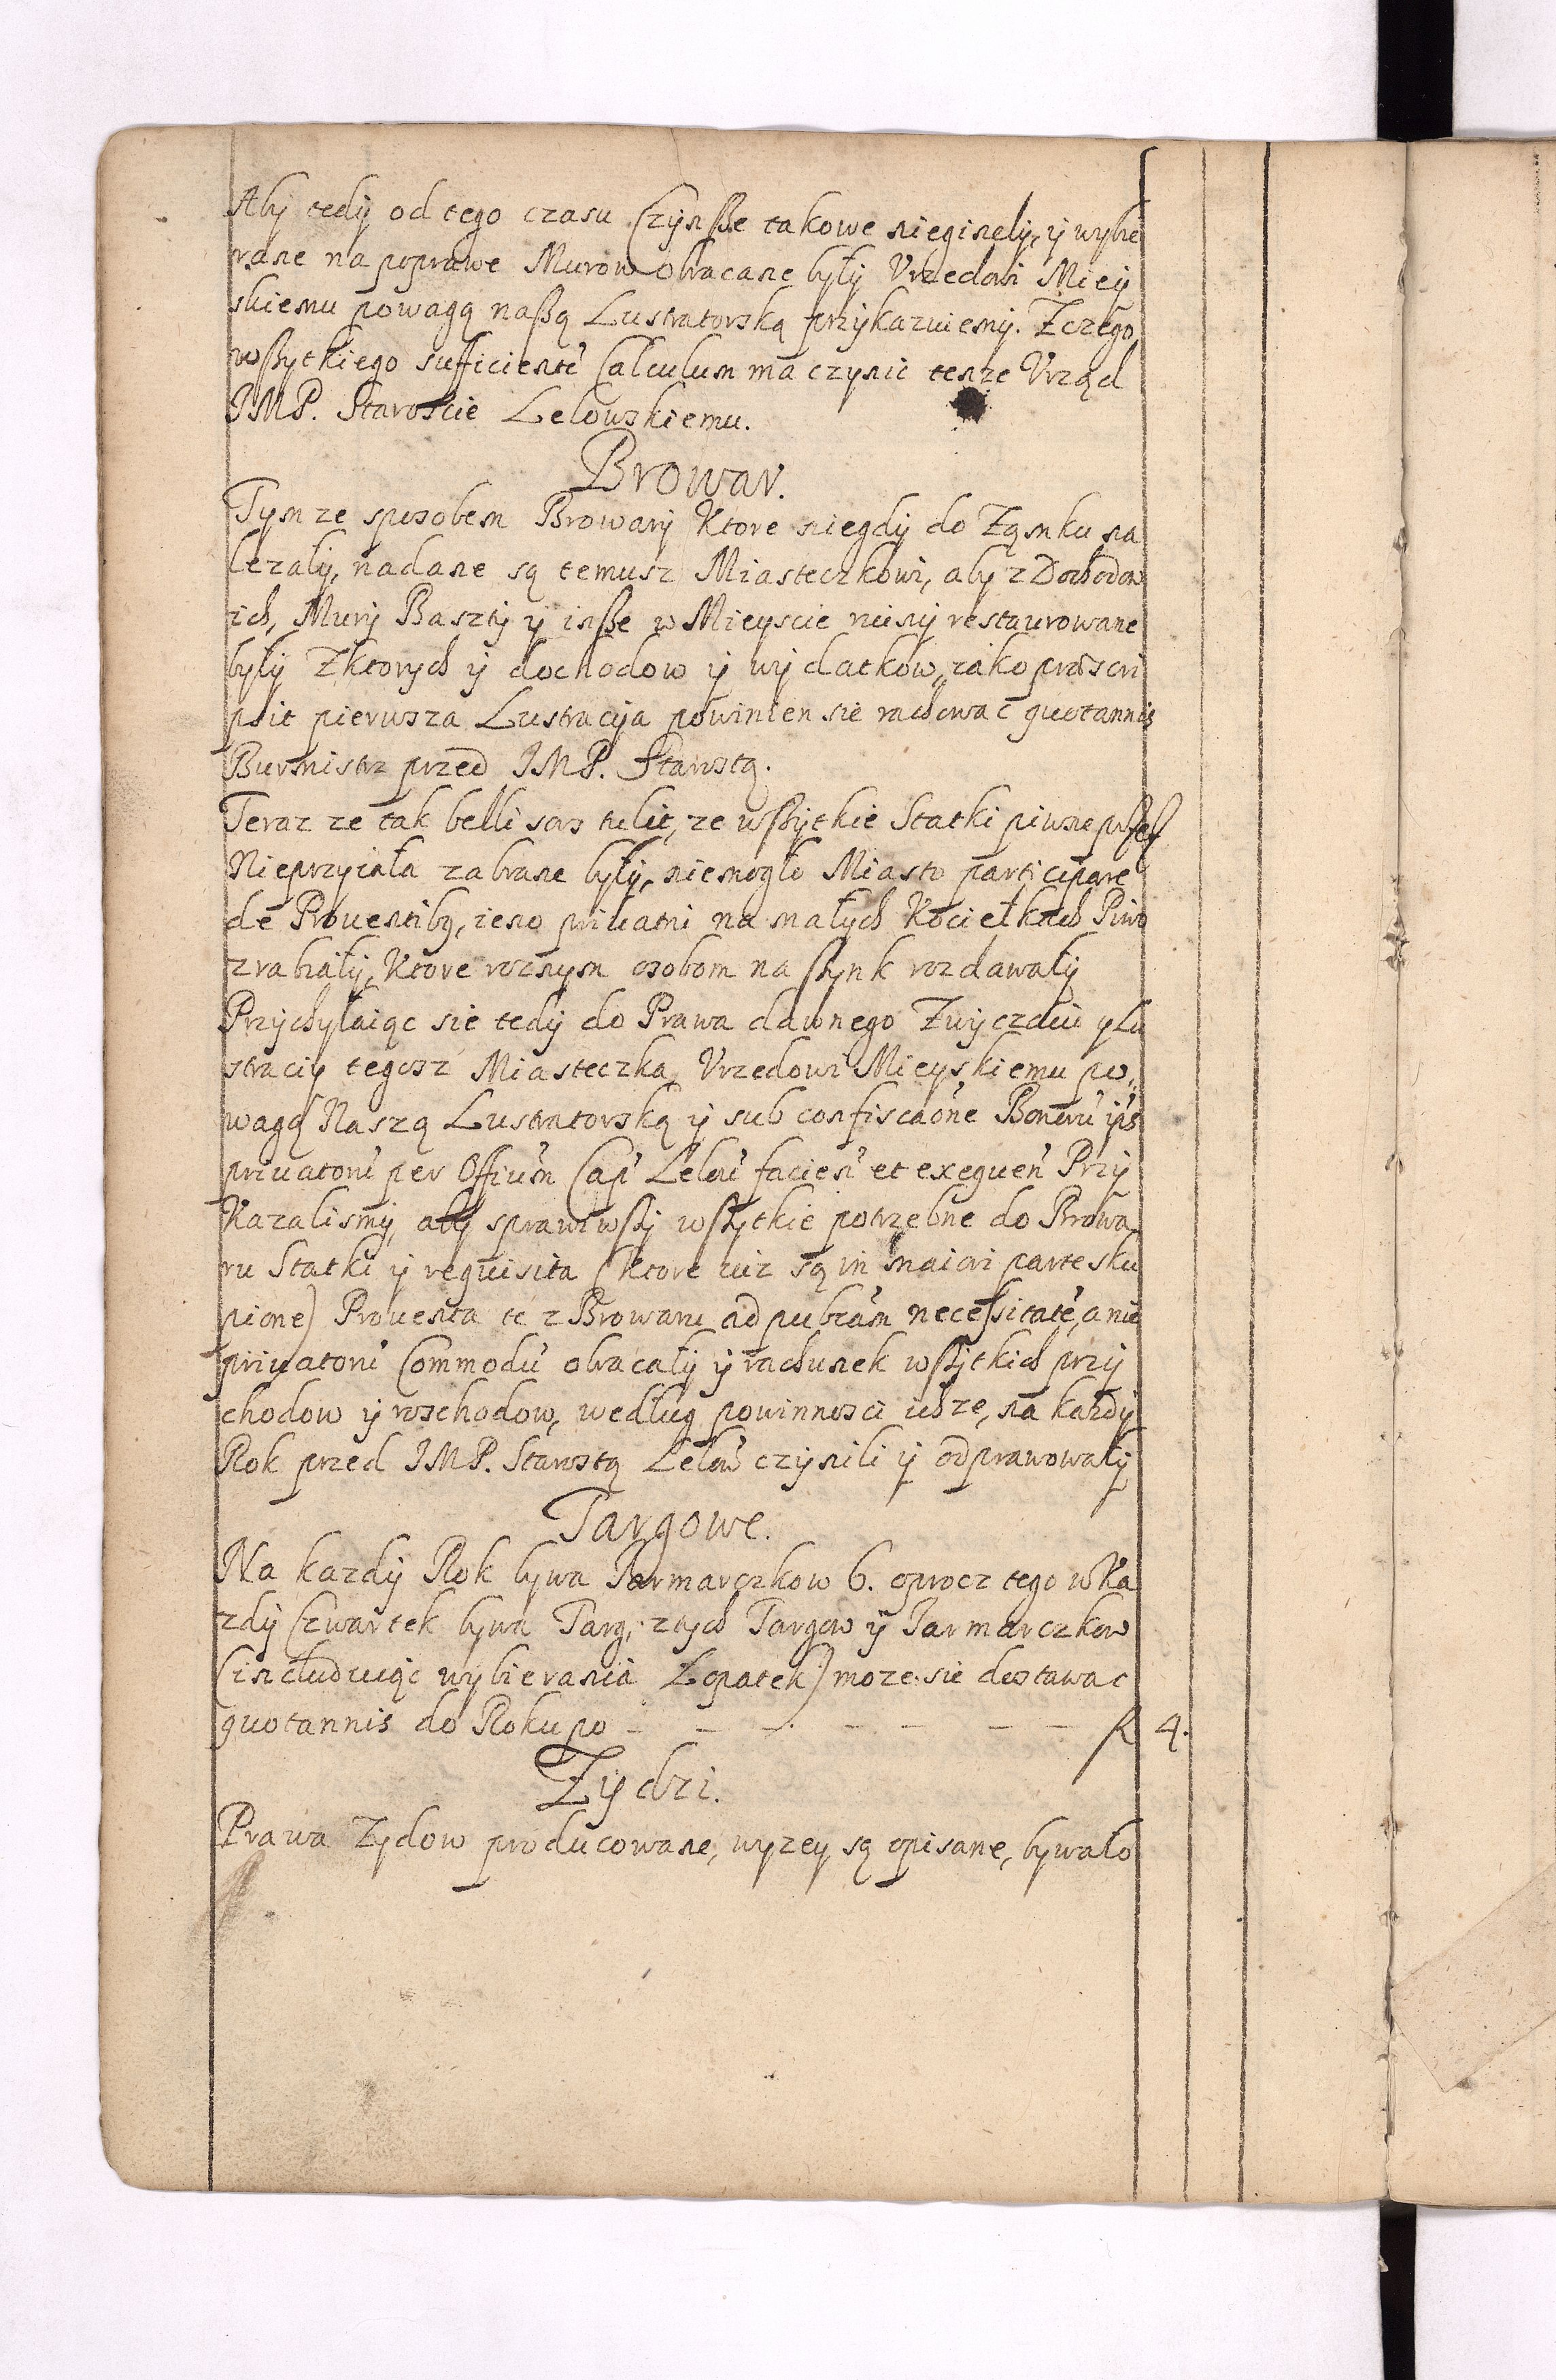 Aby tedy od tego czasu Czynsze takowe nieginęly, y wybie
rane na poprawe Murow obracane były Vrzedowi Miey
skiemu powagą naszą Lustratorską przykazuiemy. Zczego
wszytkiego sufficienté Calculum ma czynic tenze Vrząd
JMP. Staroscie Lelowskiemu.
Browar.
Tymze sposobem Browary Ktore niegdy do Zamku na
lezały, nadane są temusz Miasteczkowi, aby z Dochodow
ich, Mury Baszty y insze w Mieyscie ruiny restaurowane
były Zktorych y dochodow y wydatkow, iako præscri
psit pierwsza Lustracyja powinien sie rachowac quotannis
Burmistrz przed JMP. Starostą.
Teraz ze tak belli sors tulit, ze wszytkie Statki piwne przesz
Nieprzyiaciela zabrane były, niemogło Miasto participare
de Prouentibꝰ, ieno priuatni na małych Kociełkach Piwo
zrabiały, Ktore roznym osobom na szynk rozdawały
Przychylaiąc sie tedy do Prawa dawnego Zwyczaiu y Lu
stracij tegosz Miasteczka, Vrzedowi Mieyskiemu po„
wagą Naszą Lustratorską y sub confiscaone Bonorú ips
priuatorú per Offium Cap Lelou facien et exequen Przy
Kazalismy, aby sprawiwszy wszytkie potrzebne do Browa
ru Statki y requisita (Ktore iuz są in maiori parte sku
pione) Prouenta te z Browaru ad pubcam necessitaté, a nie
priuatorú Commodú obracały y rachunek wszytkich przy
chodow y roschodow, według powinnosci ichze, na kazdy
Rok przed JMP. Starostą Lelow czynili y odprawowały
Targowe.
Na kazdy Rok bywa Jarmarczkow 6. oprocz tego wKa
zdy Czwartek bywa Targ, z tych Targow y Jarmarczkow
(includuiąc wybierania Łopatek) moze sie dostawac
quotannis do Roku po - - - - - - - fl 4.
Zydzi.
Prawa Zydow producowane, wyzey są opisane, bywało